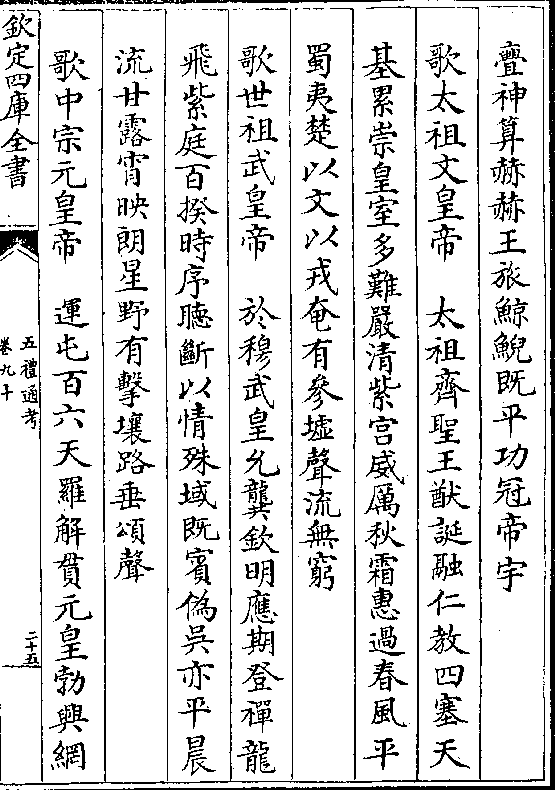 亹神算赫赫王旅鯨鯢既平功冠帝宇
歌太祖文皇帝　太祖齊聖王猷誕融仁教四塞天
基累崇皇室多難嚴清紫宫威厲秋霜惠過春風平
蜀夷楚以文以戎奄有參墟聲流無窮
歌世祖武皇帝　於穆武皇允龔欽明應期登禪龍
飛紫庭百揆時序聽斷以情殊域既賓偽吳亦平晨
流甘露宵映朗星野有擊壤路垂頌聲
歌中宗元皇帝　運屯百六天羅解貫元皇勃興網
欽定四庫全書
五禮通考
卷九十
二十五